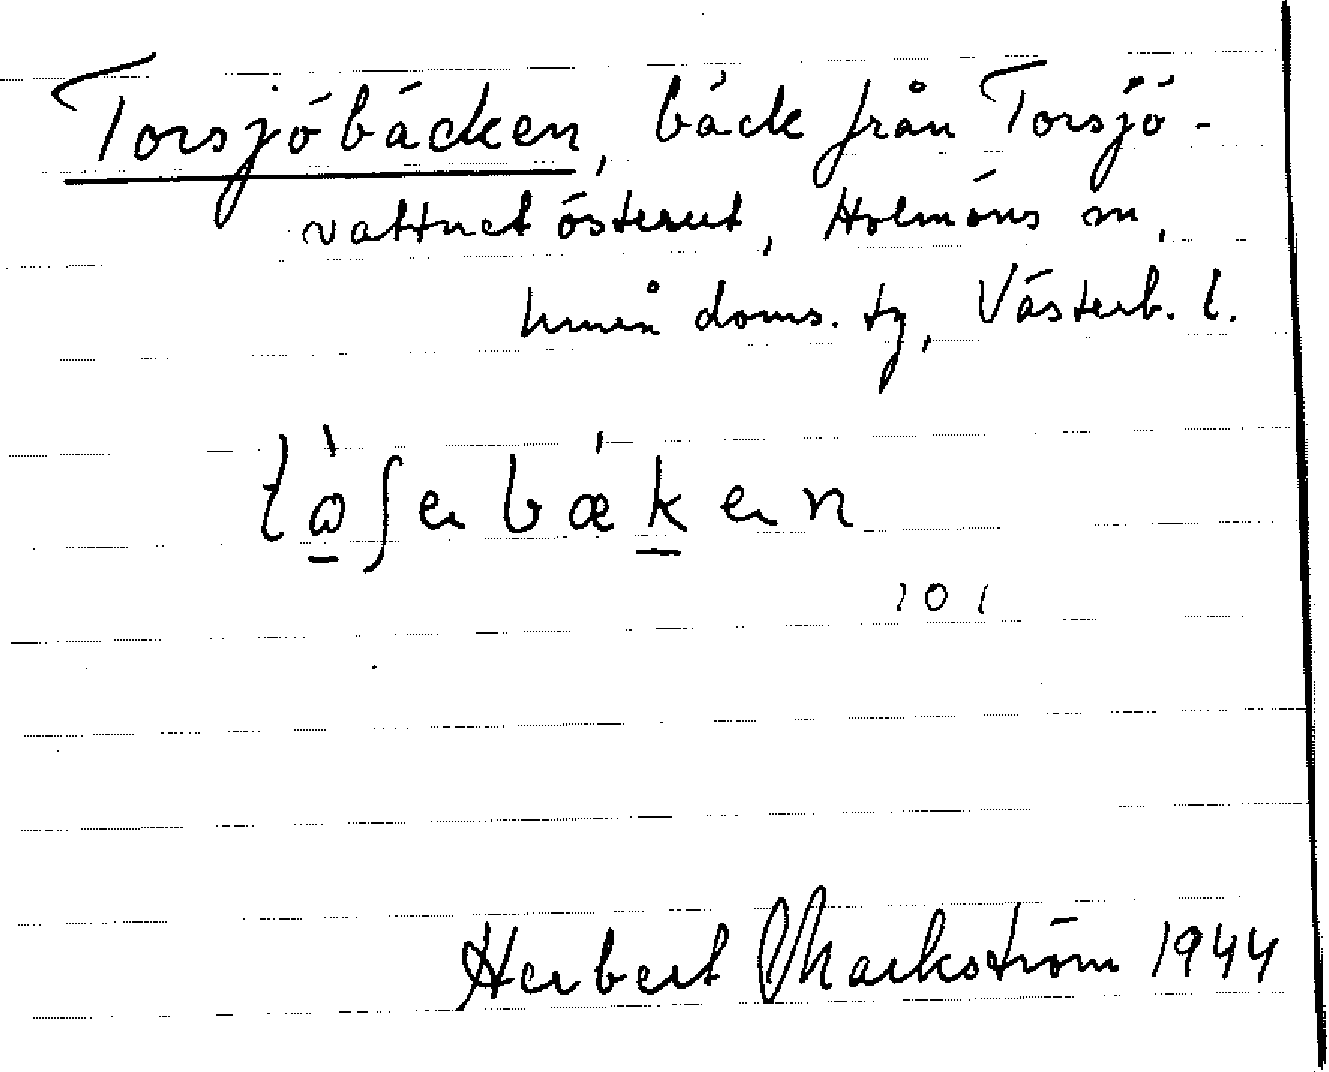 Torsjöbäcken, bäck från Torsjö-
vattnet österut, Holmöns sn,
Umeå doms. tg, Västerb. l.
tɷ̀ʃebæ´ken
101
Herbert Markström 1944